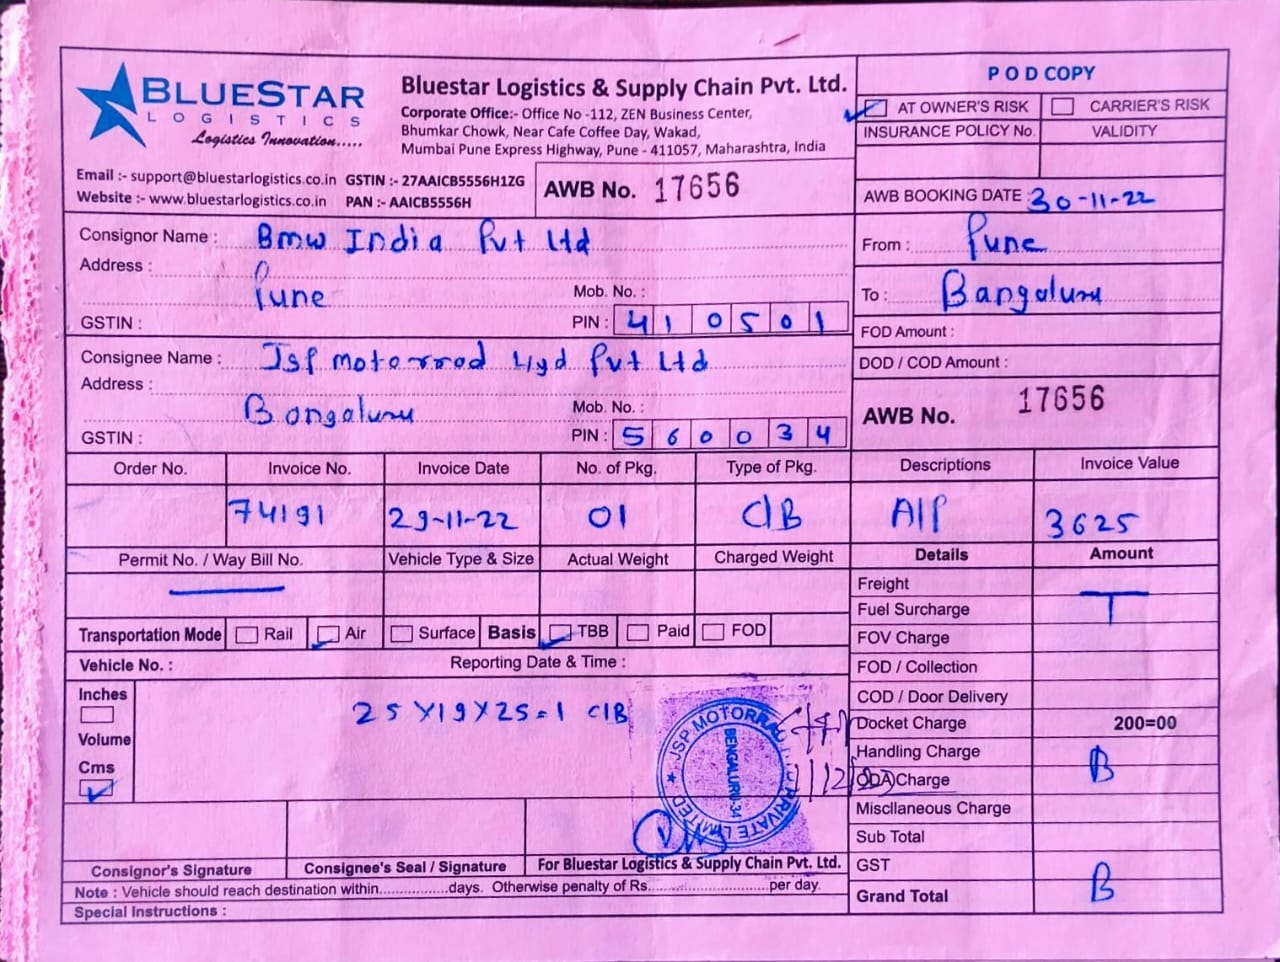 BLUESTAR
LOGISTICS
Logistics Innovation.....
Bluestar Logistics & Supply Chain Pvt. Ltd.
Corporate Office:- Office No -112, ZEN Business Center,
Bhumkar Chowk, Near Cafe Coffee Day, Wakad,
Mumbai Pune Express Highway, Pune - 411057, Maharashtra, India
Email :- support@bluestarlogistics.co.in GSTIN :- 27AAICB5556H1ZG
Website :- www.bluestarlogistics.co.in PAN :- AAICB5556H
AWB No. 17656
POD COPY
AT OWNER'S RISK CARRIER'S RISK
INSURANCE POLICY No. VALIDITY
AWB BOOKING DATE : 30-11-22
From : Pune
To : Bangaluru
FOD Amount :
DOD / COD Amount :
AWB No. 17656
Consignor Name : Bmw India Pvt Ltd
Address :
Pune Mob. No. :
GSTIN : PIN : 410501
Consignee Name : Jsp motorrod Hyd Pvt Ltd
Address :
Bongaluru Mob. No. :
GSTIN : PIN : 560034
Order No. Invoice No. Invoice Date No. of Pkg. Type of Pkg. Descriptions Invoice Value
74191 29-11-22 01 C/B A/P 3625
Permit No. / Way Bill No. Vehicle Type & Size Actual Weight Charged Weight Details Amount
Freight
Fuel Surcharge T
FOV Charge
FOD / Collection
COD / Door Delivery
Docket Charge 200=00
Handling Charge
ODA Charge B
Miscllaneous Charge
Sub Total
GST
Grand Total B
Transportation Mode Rail Air Surface Basis TBB Paid FOD
Vehicle No. : Reporting Date & Time :
Inches
Volume
Cms
25 X 19 X 25 = 1 C/B
JSP MOTORRAD PRIVATE LIMITED
BENGALURU-34
Consignor's Signature Consignee's Seal / Signature For Bluestar Logistics & Supply Chain Pvt. Ltd.
Note : Vehicle should reach destination within.................days. Otherwise penalty of Rs.............................per day.
Special Instructions :